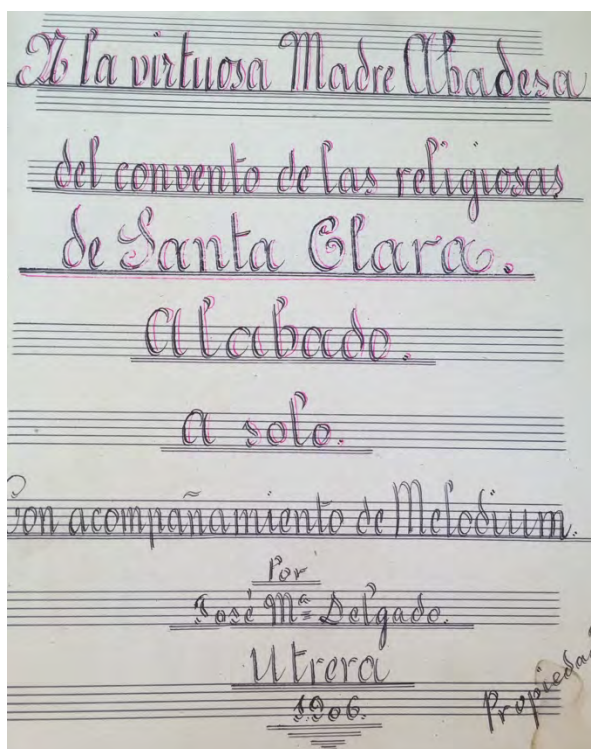 A la virtuosa Madre Abadesa
del convento de las religiosas
de Santa Clara.
Alabado.
a solo.
Con acompañamiento de Melodium.
Por
José Mª Delgado.
Utrera
1906.
Propiedad